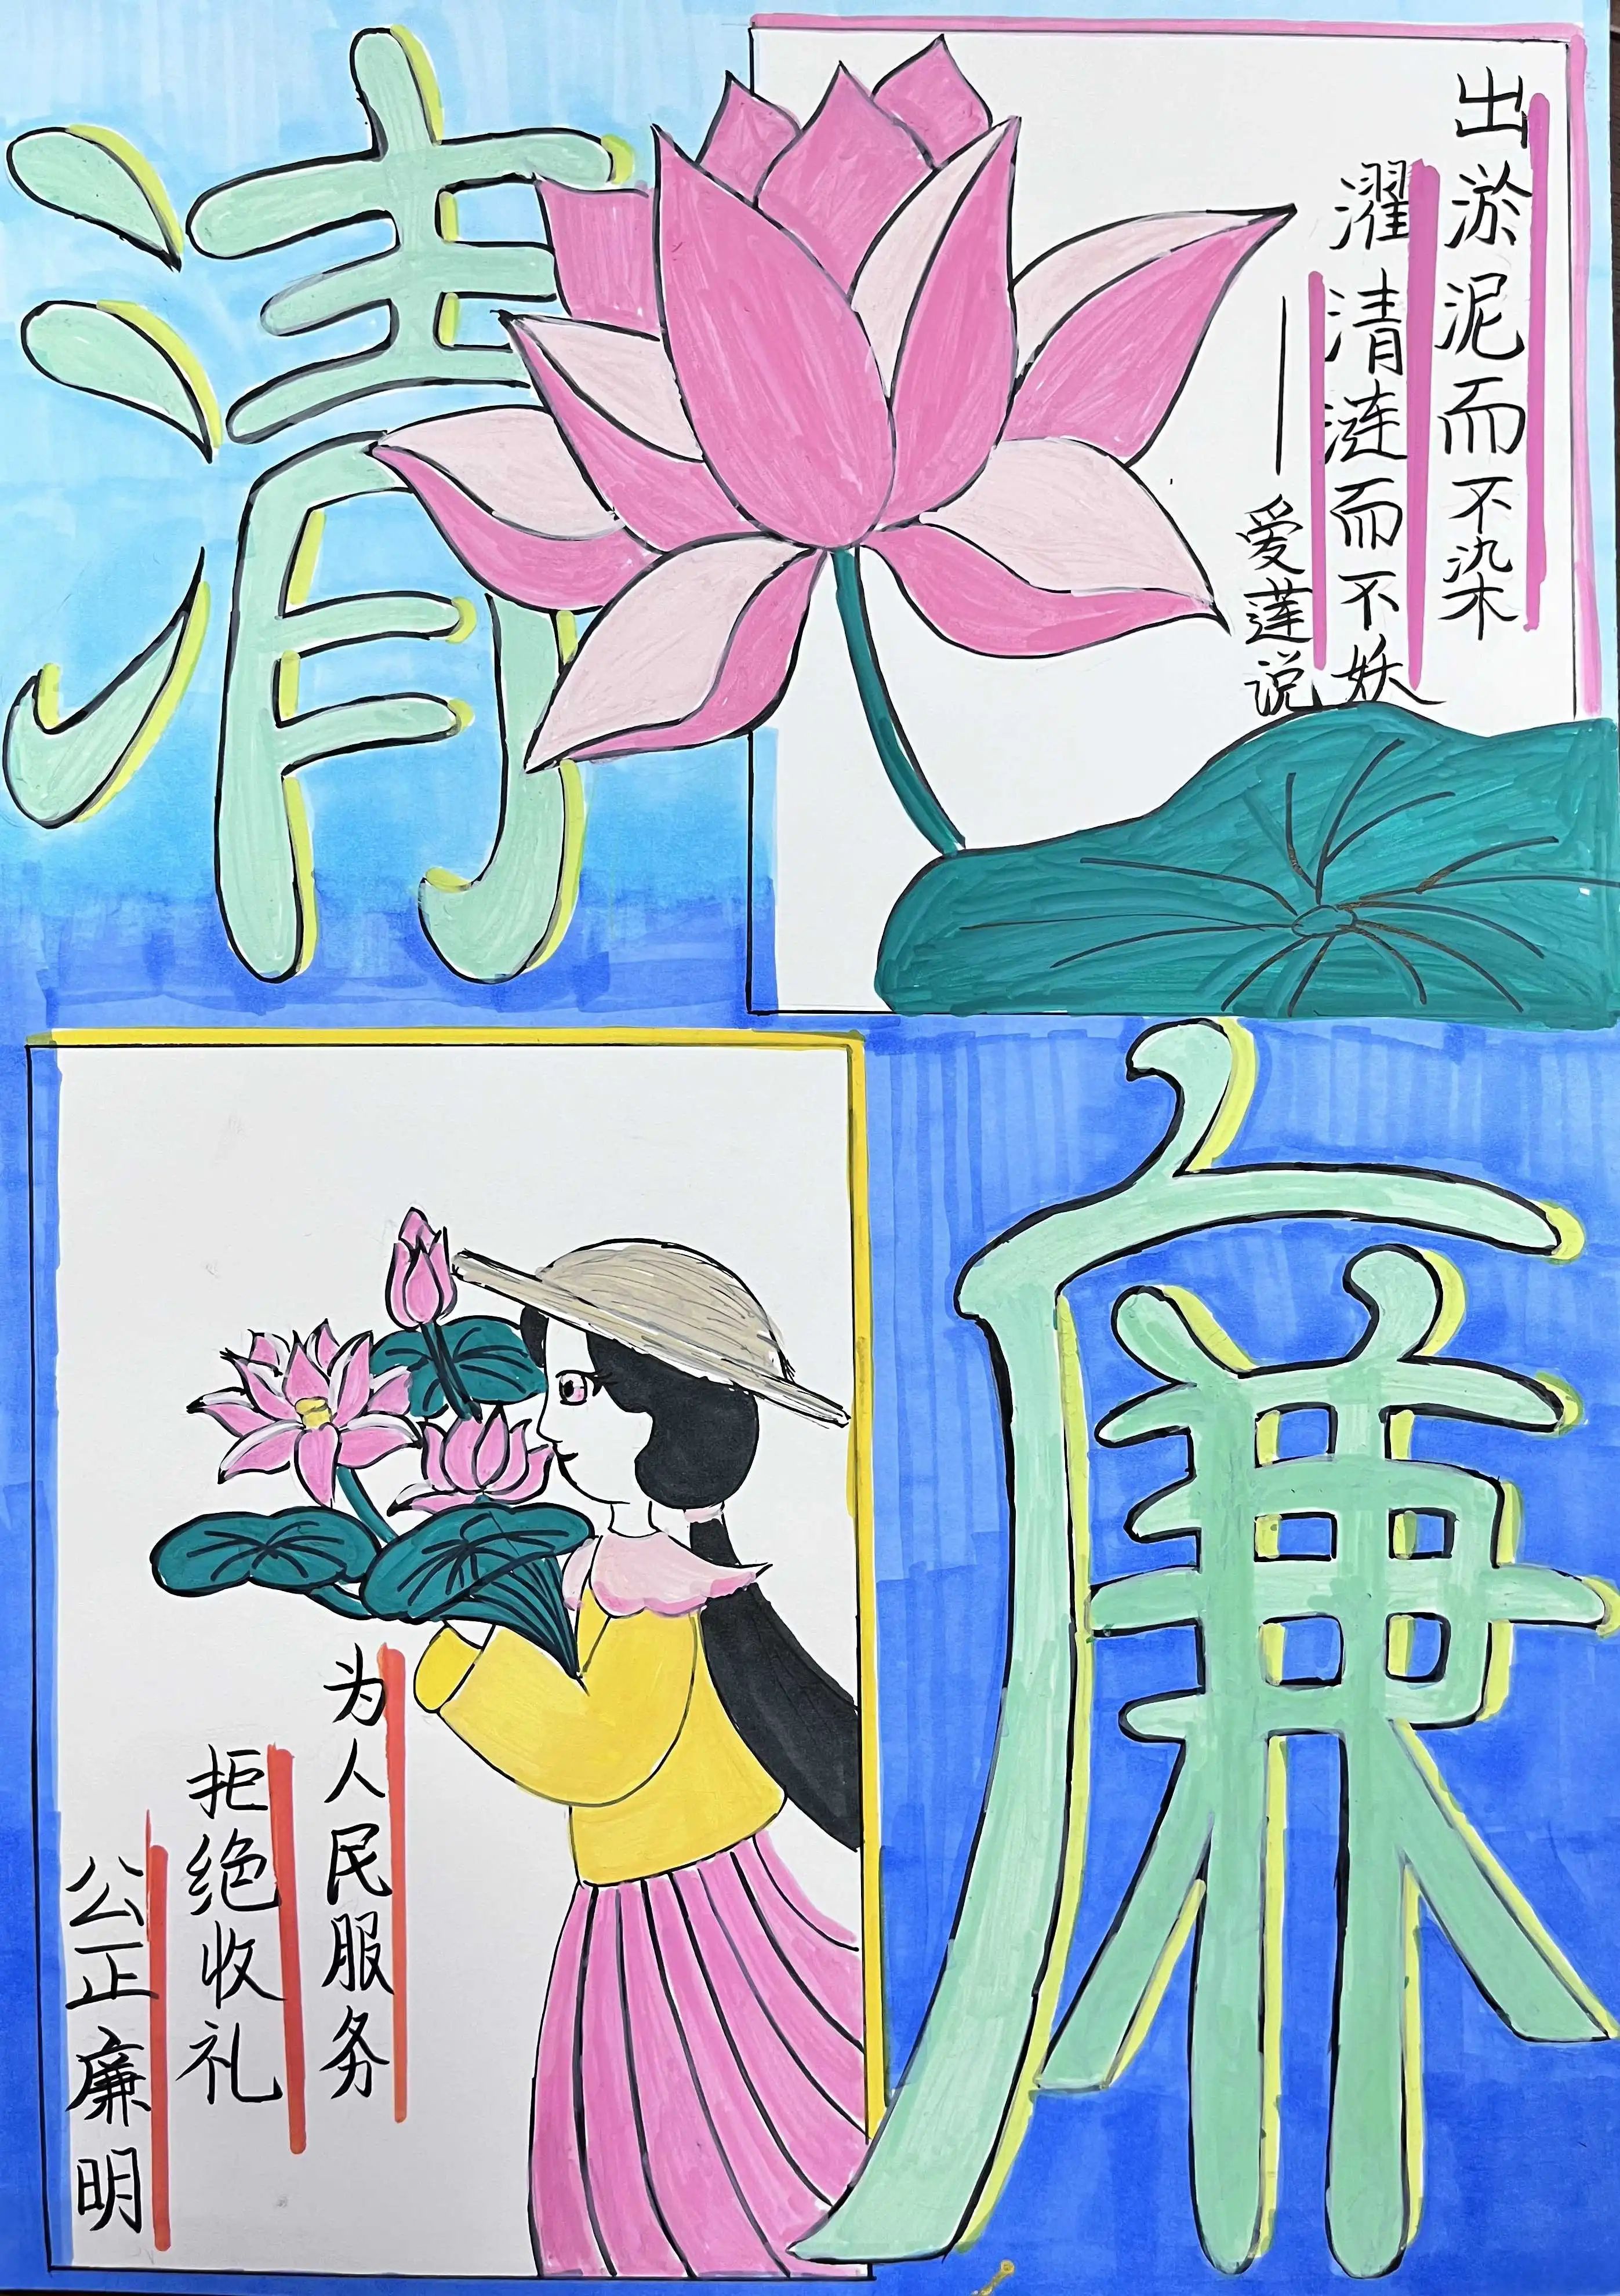 清
出淤泥而不染
濯清涟而不妖
——爱莲说
为人民服务
拒绝收礼
公正廉明
廉